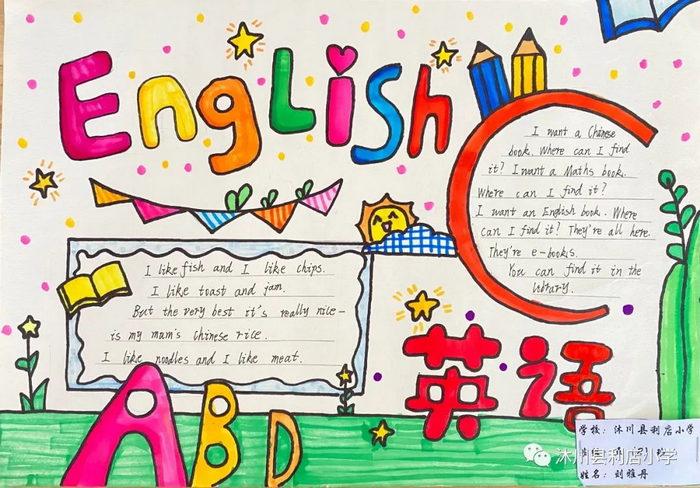 English
I want a Chinese
book. Where can I find
it? I want a Maths book.
Where can I find it?
I want an English book. Where
can I find it? They're all here.
They're e-books.
You can find it in the
library.
I like fish and I like chips.
I like toast and jam.
But the very best it's really nice-
is my mum's Chinese rice.
I like noodles and I like meat.
英语
ABD
学校：沐川县利店小学
班
姓名：刘雅丹
沐川县利店小学